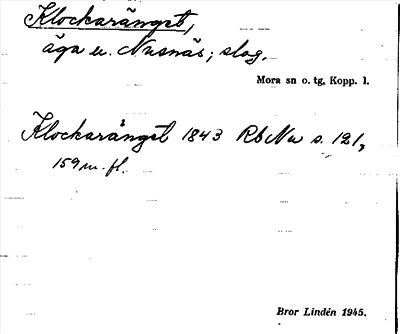 Klockaränget,
äga u. Nusnäs; slog.
Mora sn o. tg, Kopp. l.
Klockarånget 1843 RbNu s. 121,
159 m. fl.
Bror Lindén 1945.